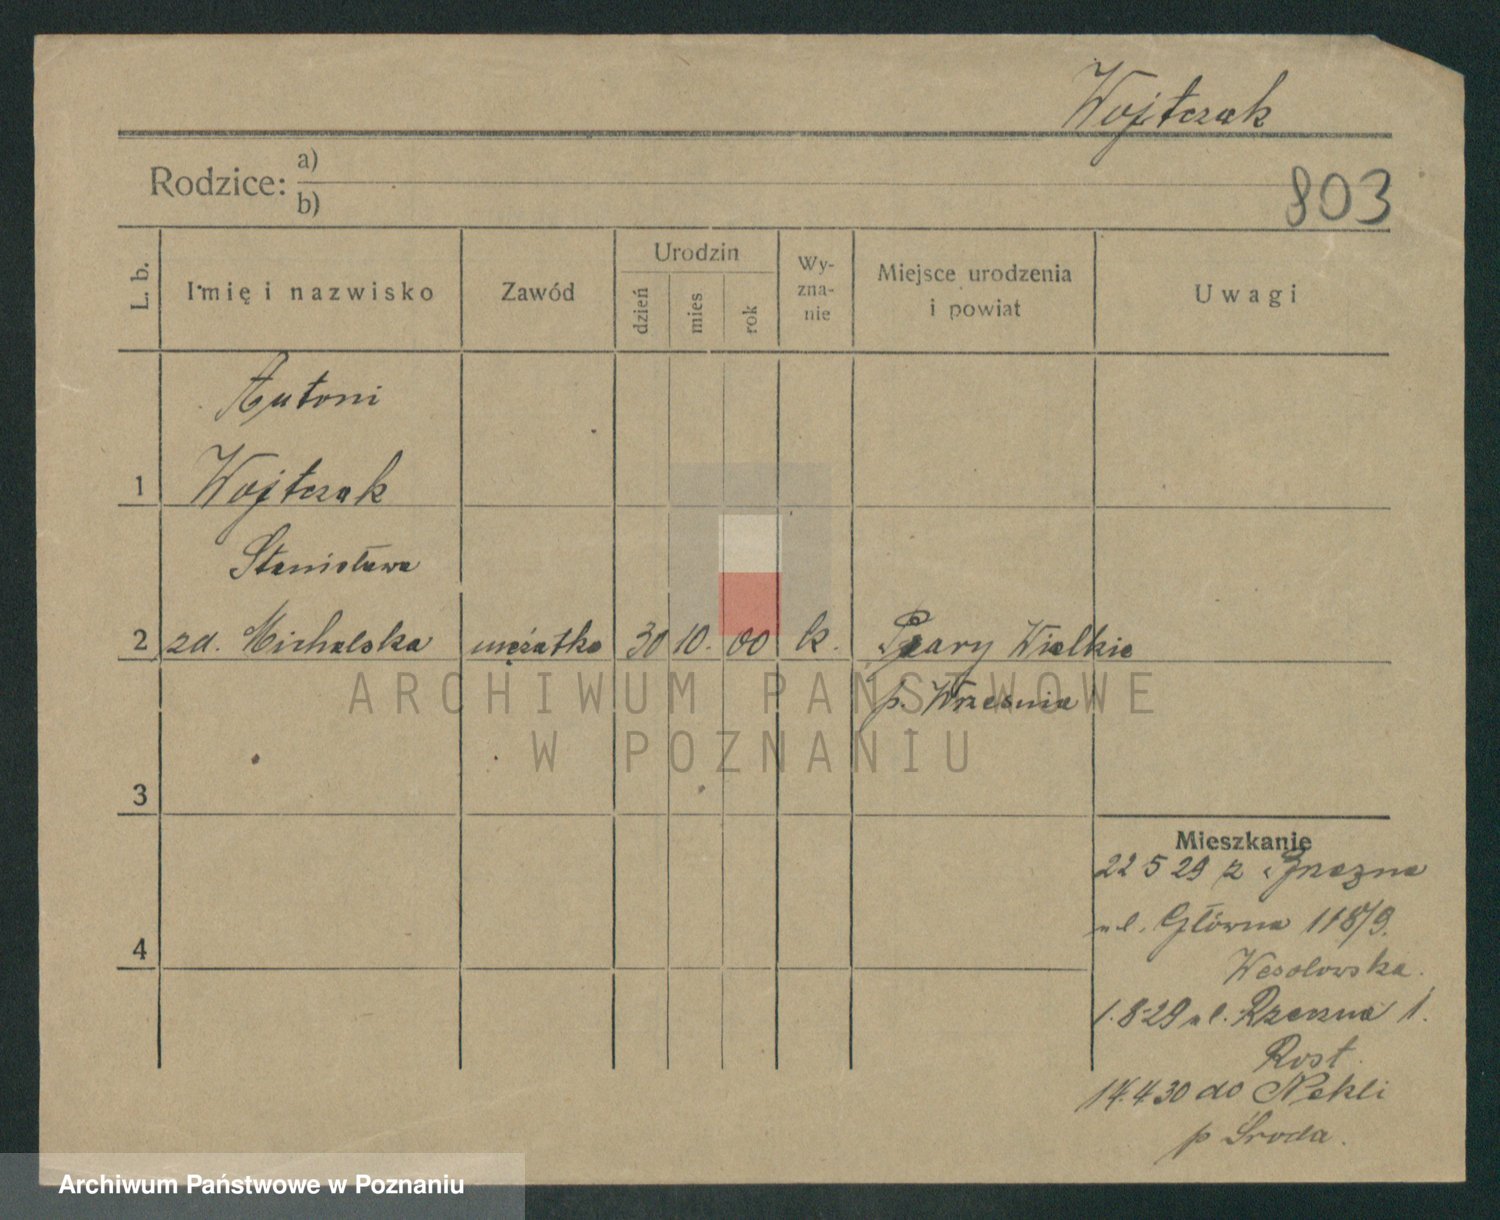 Wojtczak
803
Rodzice: a)
b)
L. b.
Imię i nazwisko
Zawód
Urodzin
dzień
mies
rok
Wy-
zna-
nie
Miejsce urodzenia
i powiat
Uwagi
Antoni
1 Wojtczak
Stanisława
2 zd. Michalska mężatka 30 10. 00 k. Psary Wielkie
p. Września
3
4
Mieszkanie
22 5 29 z Gnezna
ul. Główna 118/9.
Wesołowska.
1.8 29 ul. Rzeczna 1.
Rost.
14.4 30 do Nekli
p Środa.
ARCHIWUM PAŃSTWOWE
W POZNANIU
Archiwum Państwowe w Poznaniu